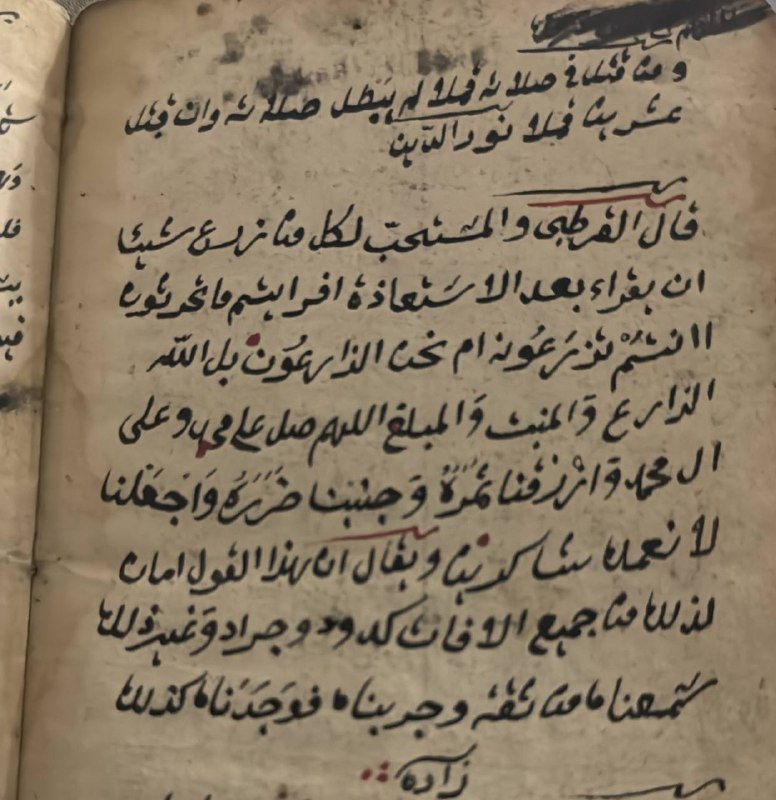 ومن قتل في صلاته قملا لم يبطل صلاته وان قتل
عشرين قملا نور الدين
قال القرطبى والمستحبّ لكل من زرع شيئا
ان يقراء بعد الاستعاذة افرايتم ما تحرثون
اانتمْ تزرَعُونه ام نحن الزارعُون بل اللّٰه
الزارع وَالمنبت وَالمبلغ اللهم صل على محمد وعلى
ال محمد وَارْزقنا ثمرَهُ وَجنبنا ضررَهُ وَاجْعَلنا
لانعمك شاكرين ويقال ان هذا القول امان
لذلك من جميع الافات كدود وجراد وَغير ذلك
سَمعناه من ثقة وجربناه فوَجَدَناه كذلك
زاده